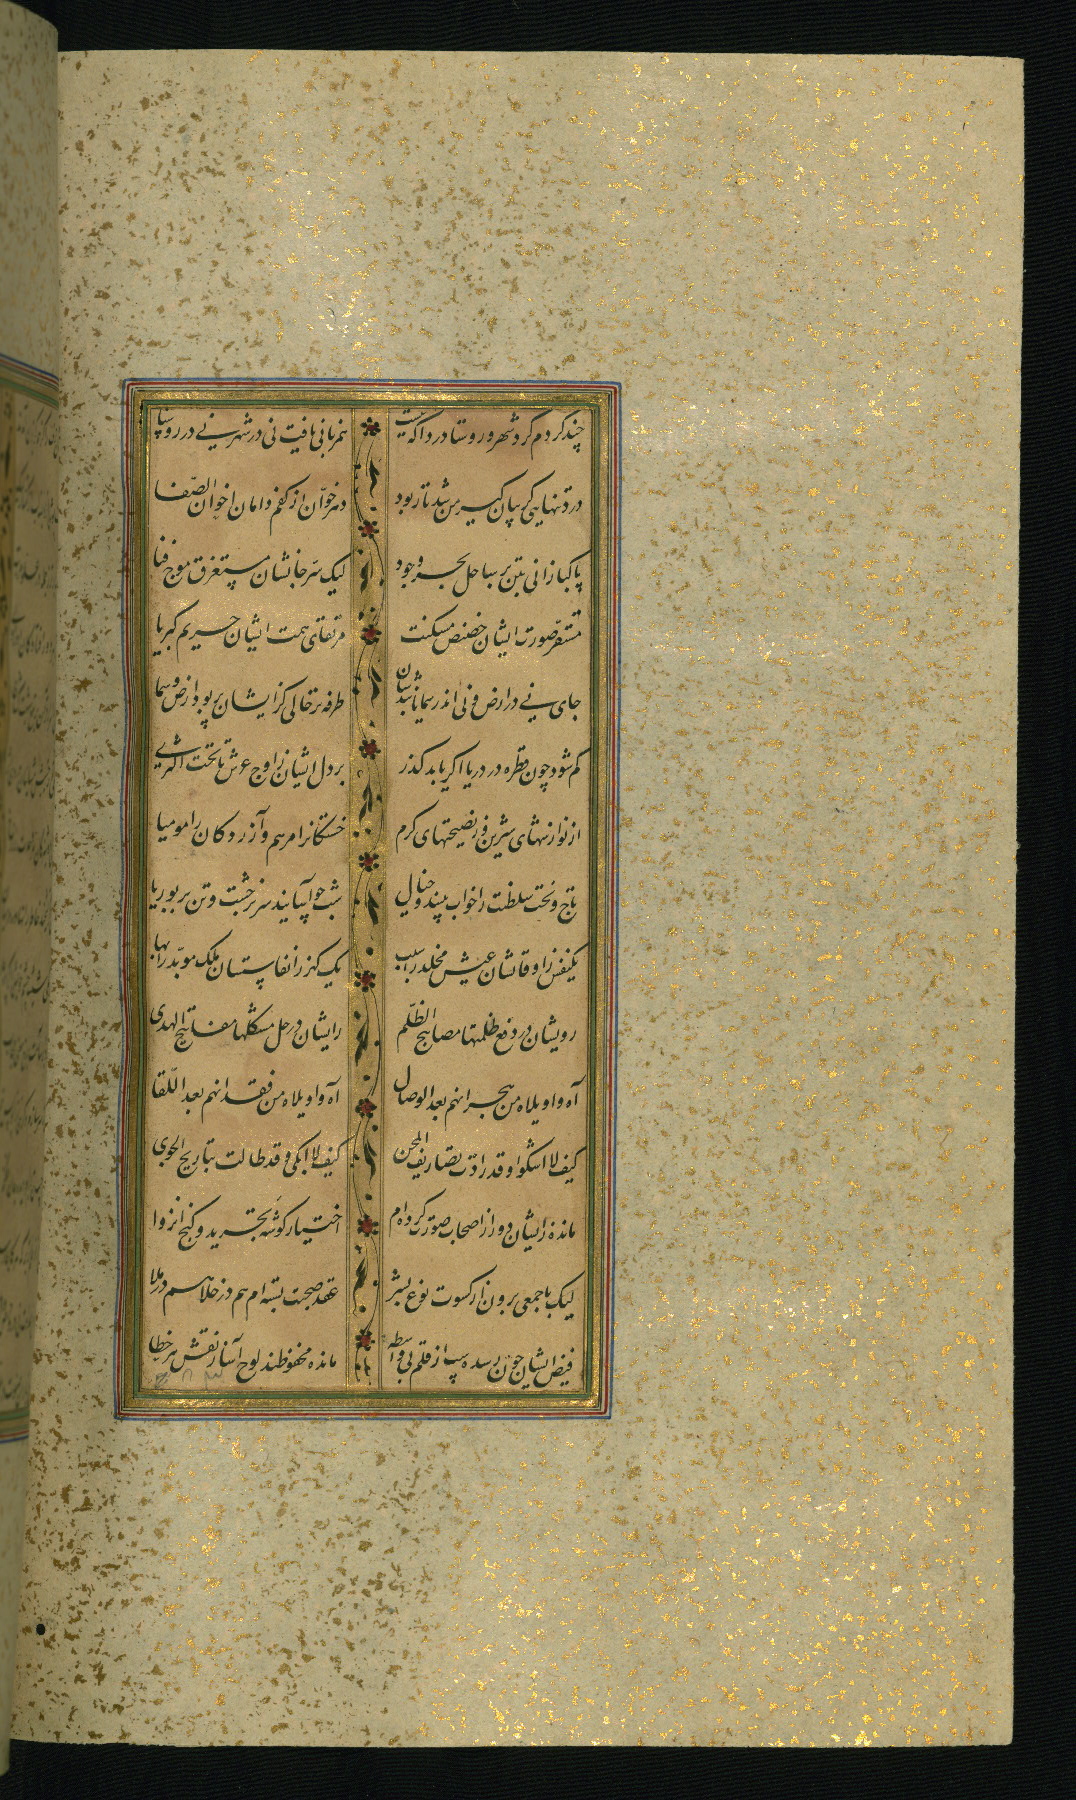 چند کردم گرد شهر و روستا دردا که نیست
همزبانی یافت نی در شهر نی در روستا
درد تنهایی گریبان گیر من شد تا ربود
دهر خوان از کفم دامان اخوان الصفا
پاکبازانی بتن بر ساحل بحر وجود
لیک سر جانشان مستغرق موج فنا
مستقر صورت ایشان حضیض مسکنت
مرتقای همت ایشان حریم کبریا
جای نی در ارض و نی اندر سما باشدشان
طرفه تر خالی کزایشان پر بود ارض و سما
گم شود چون قطره در دریا اگر یابد گذر
بر دل ایشان ز اوج عرش تا تحت الثری
از نوازشهای شیرین وز نصیحتهای گرم
خستگانرا مرهم و آزردگان را مومیا
تاج و تخت سلطنت را خواب بینند و خیال
شب چو آسایند سر بر خشت و تن بر بوریا
یکنفس ز اوقاتشان عیش مخلد را سبب
یک گهر ز انفاسشان ملک موبد را بها
رویشان در دفع ظلمتها مصابیح الظلم
رایشان در حل مشکلها مفاتیح الهدی
آه و اویلاه من هجرانهم بعد الوصال
آه و اویلاه من فقدانهم بعد اللقا
کیف لا اشکوا و قد زادت تصاریف المحن
کیف لا ابکی و قد طالت تباریح الجوی
مانده ز ایشان دور از اصحاب صورت کرده ام
اختیار گوشه تجرید و کنج انزوا
لیک با جمعی برون از کسوت نوع بشر
عقد صحبت بسته ام هم در خلا هم در ملا
فیض ایشان چون رسیده بی از قلم بی واسطه
مانده محفوظند لوح آسا ز نقش هر خطا